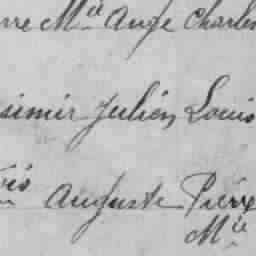 rre M.ie Ange Charles
simir Julien Louis
ois Auguste Pierre
M.ie